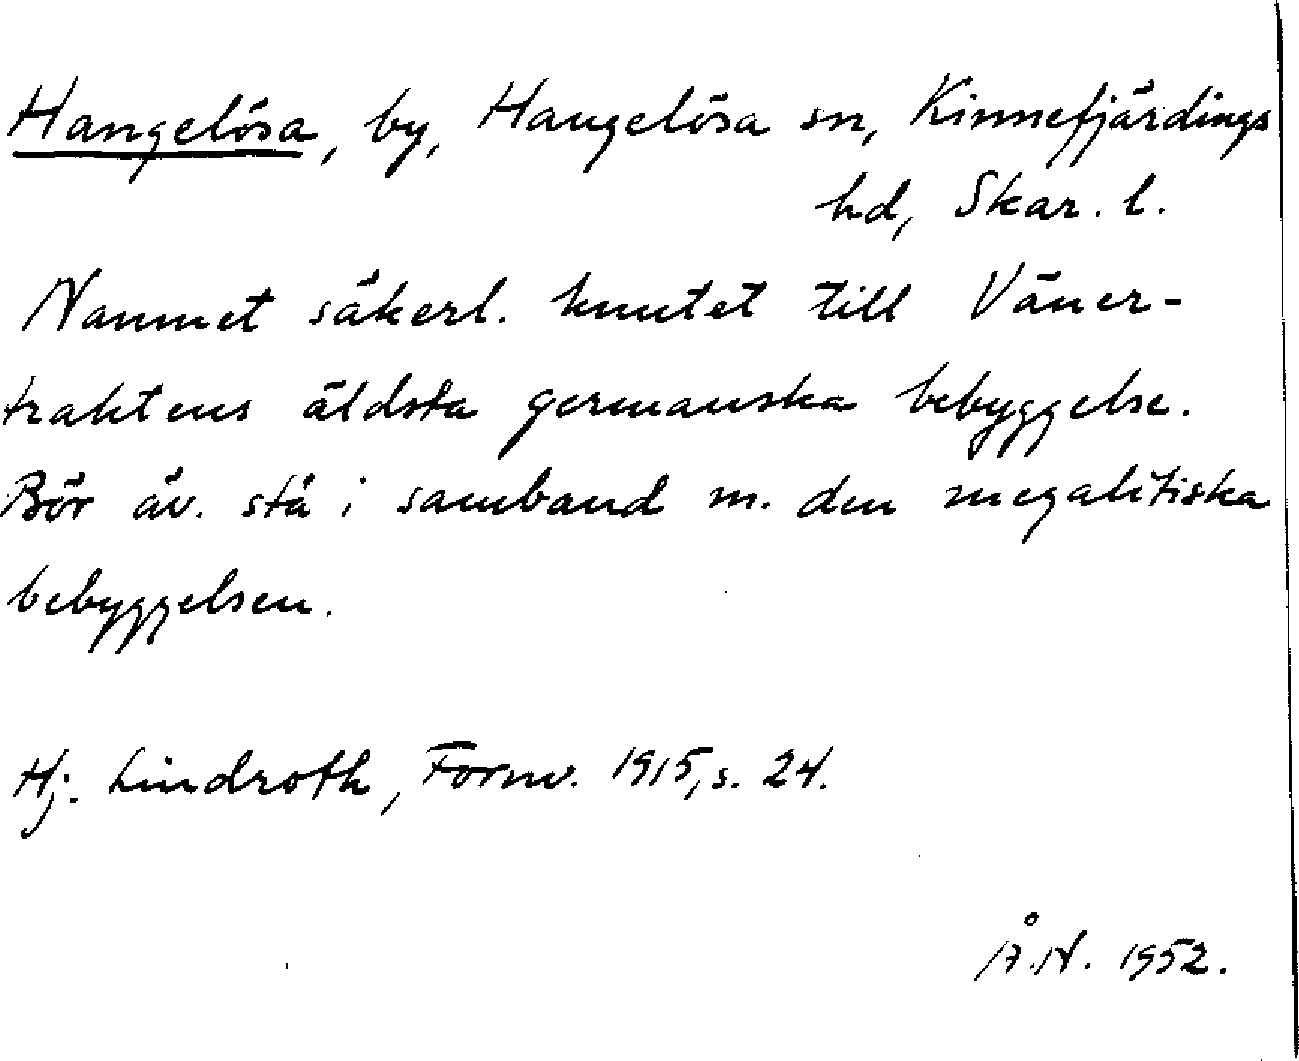 Hangelösa, by, Hangelösa sn, Kinnefjärdings
hd, Skar. l.
Namnet säkerl. knutet till Väner-
traktens äldsta germanska bebyggelse.
Bör äv. stå i samband m. den megalitiska
bebyggelsen.
Hj. Lindroth, Fornv. 1915, s. 24.
Å.N. 1952.